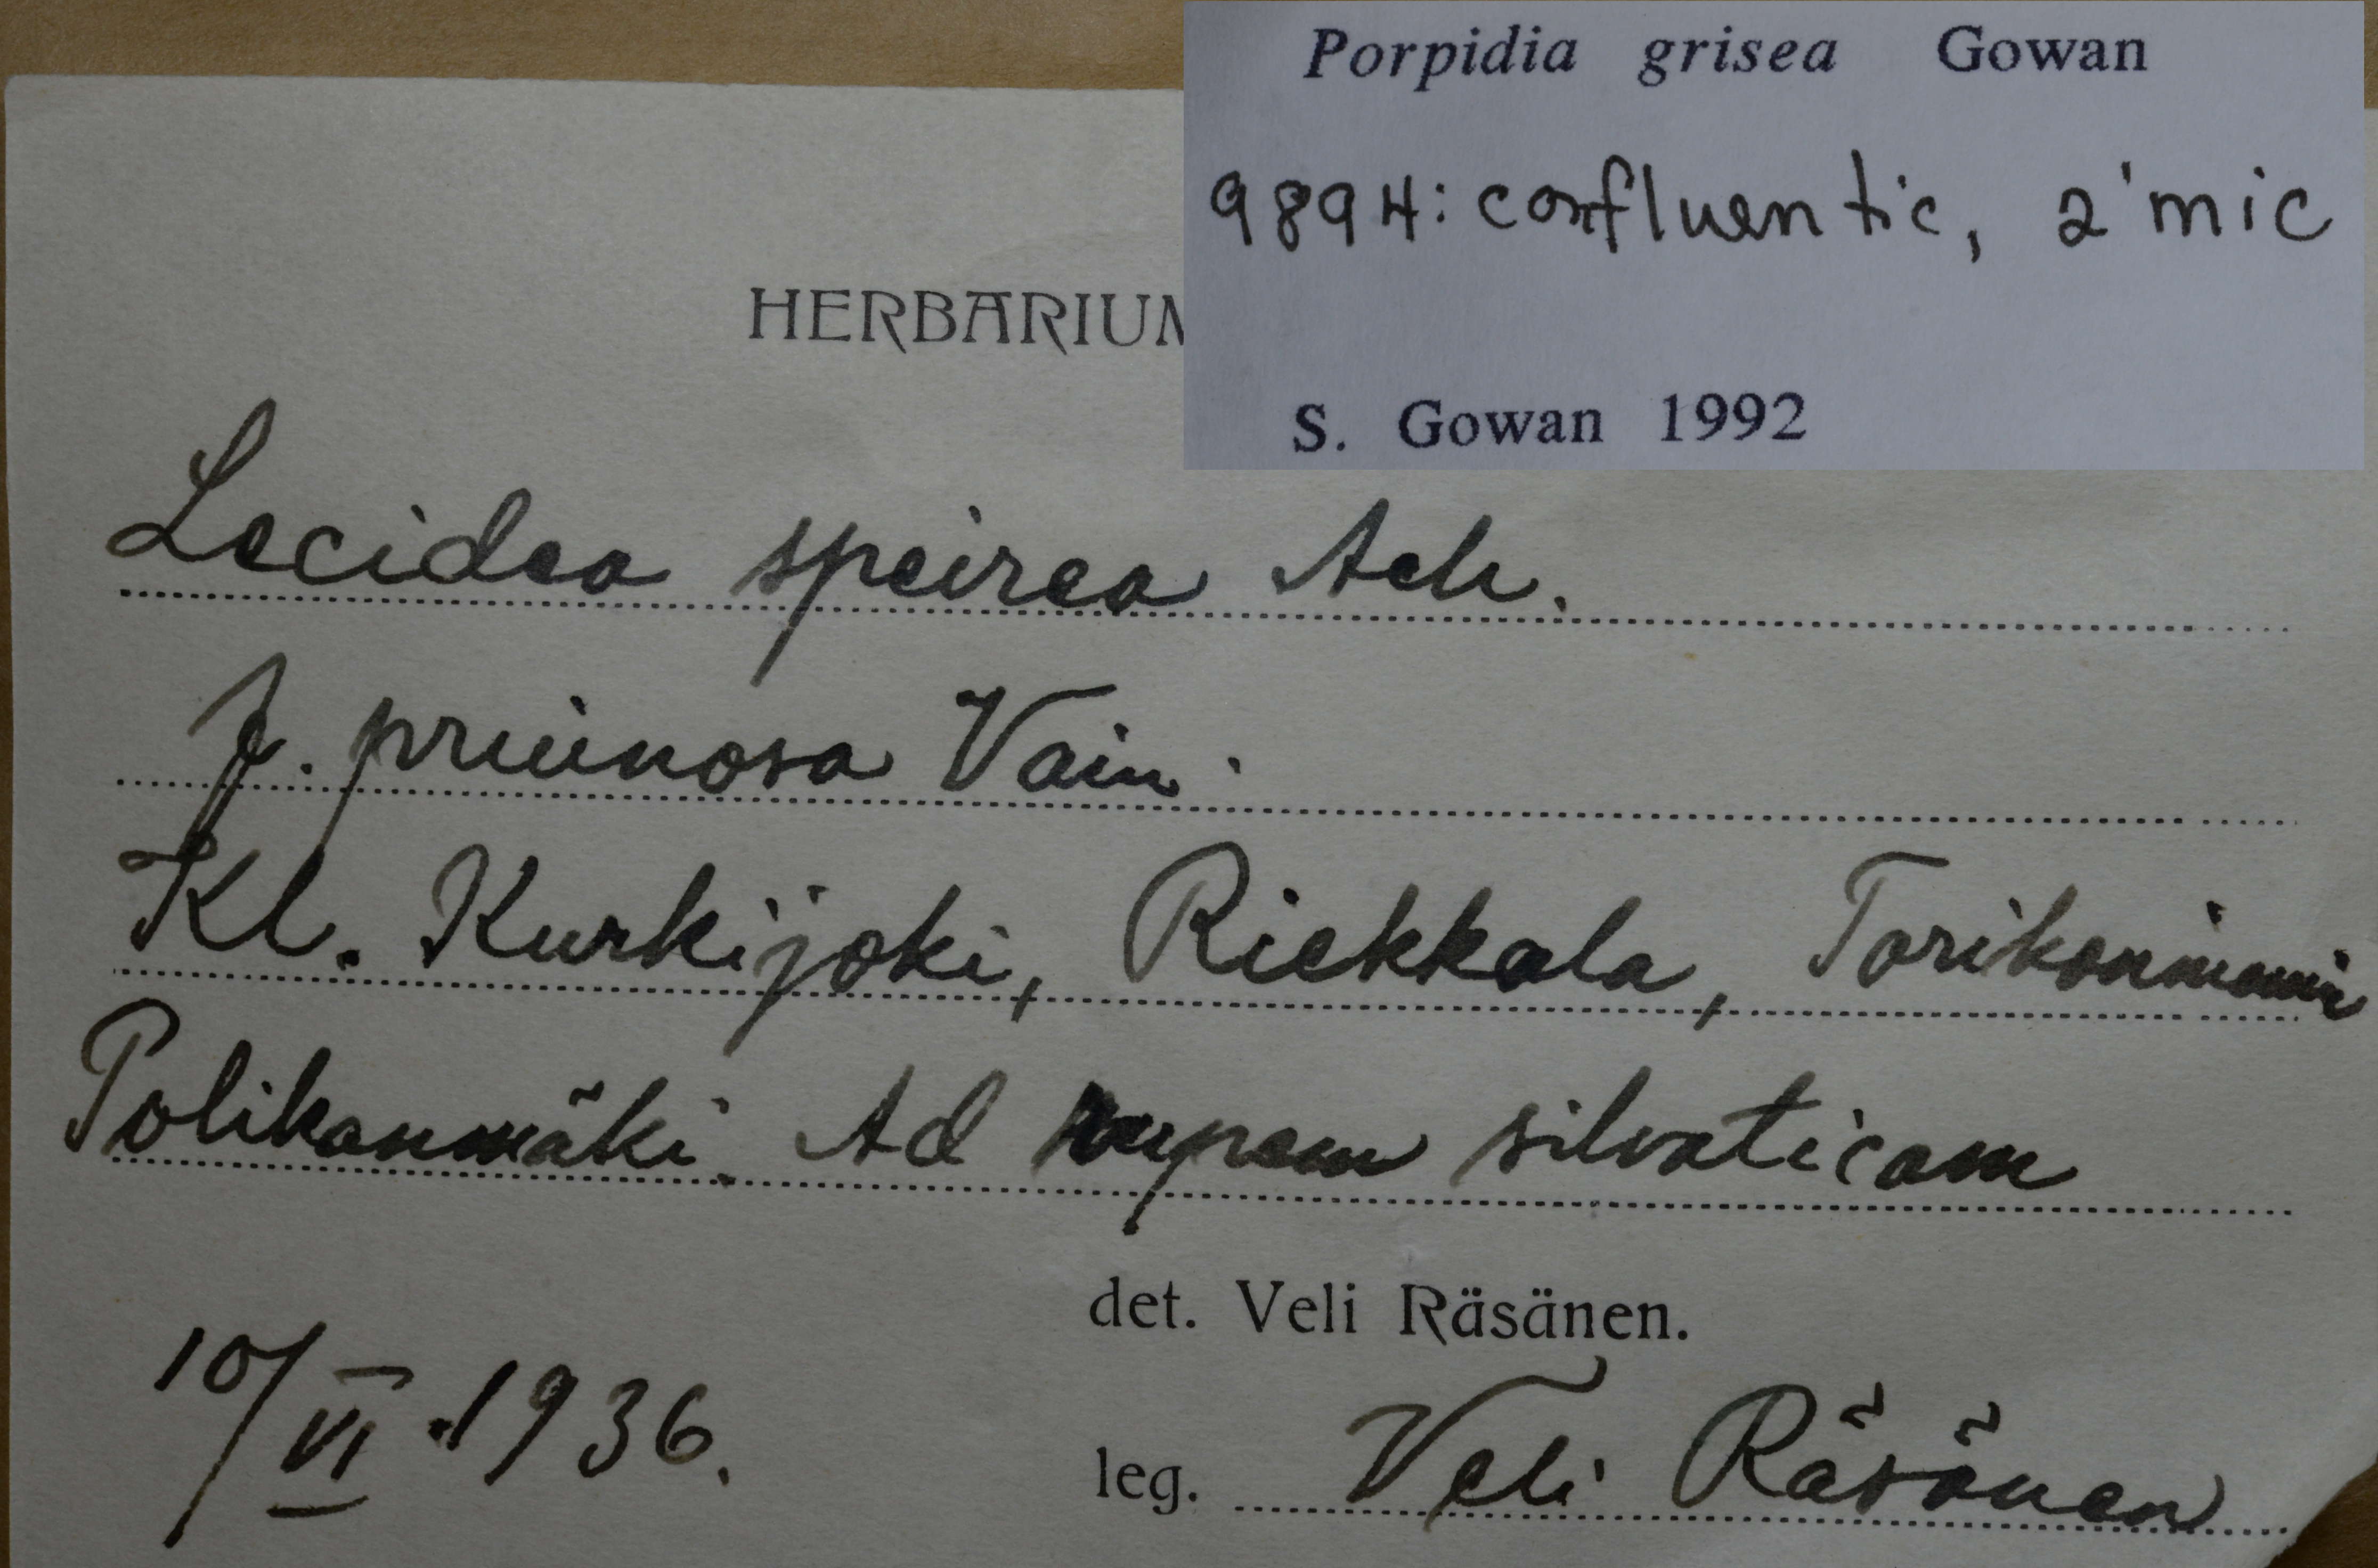 Porpidia grisea Gowan
9894: confluentic, 2'mic
S. Gowan 1992
HERBARIUM
Lecidea speirea Ach.
f. pruinosa Vain.
Kl. Kurkijoki, Riekkala, Torikonniemi
Polikanmäki. Ad rupem silvaticam
det. Veli Räsänen.
10/VI.1936.
leg. Veli Räsänen